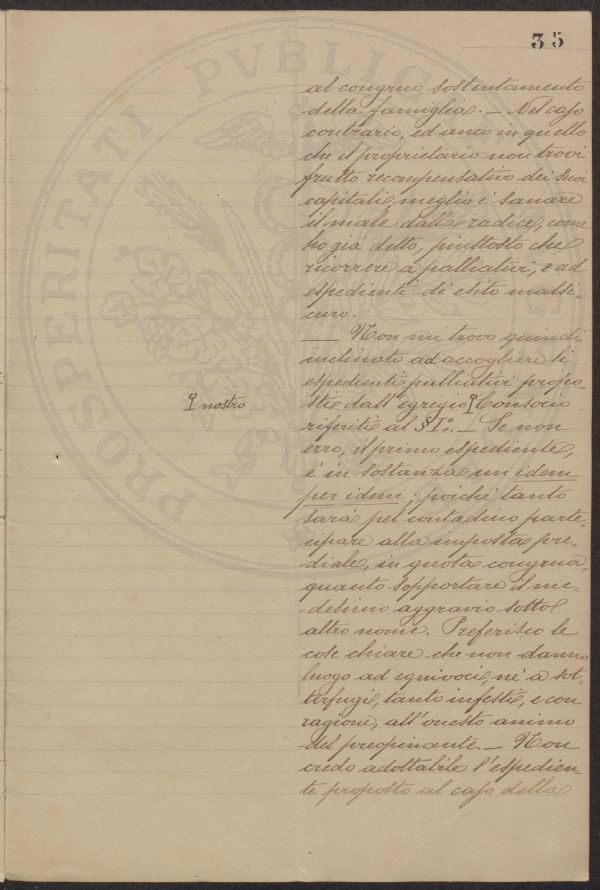 35
al congruo sostentamento
della famiglia. — Nel caso
contrario, ed anco in quello
che il proprietario non trovi
frutto recompensativo dei suoi
capitali, meglio è sanare
il male dalla radice, come
ho già detto, piuttosto che
ricorrere a palliativi, e ad
espedienti di esito malsi-
curo.
— Non mi trovo quindi
inclinato ad accogliere li
espedienti palliativi propo-
sti dall'egregio Consocio
nostro
riferiti al § I.º — Se non
erro, il primo espediente,
è in sostanza un idem
per idem; poichè tanto
sarà pel contadino parte-
cipare alla imposta pre-
diale, in quota congrua,
quanto sopportare il me-
desimo aggravio sotto
altro nome. Preferisco le
cose chiare che non danno
luogo ad equivoci, nè a sot-
terfugi, tanto infesti, e con
ragione, all'onesto animo
del preopinante. — Non
credo adottabile l'espedien-
te proposto al caso della
PROSPERITATI PVBLIC